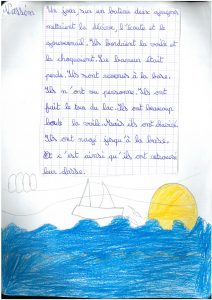 Un jour, sur un bateau deux copains
mettaient la dérive, l'écoute et le
gouvernail. Ils bordaient la voile et
la choquaient. Le bateau était
perdu. Ils sont revenus à la base.
Ils n'ont vu personne. Ils ont
fait le tour du lac. Ils ont beaucoup
bordé la voile. Mais ils ont
Ils ont nagé jusqu'à la base.
Et c'est ainsi qu'ils ont retrouvé
leur classe.